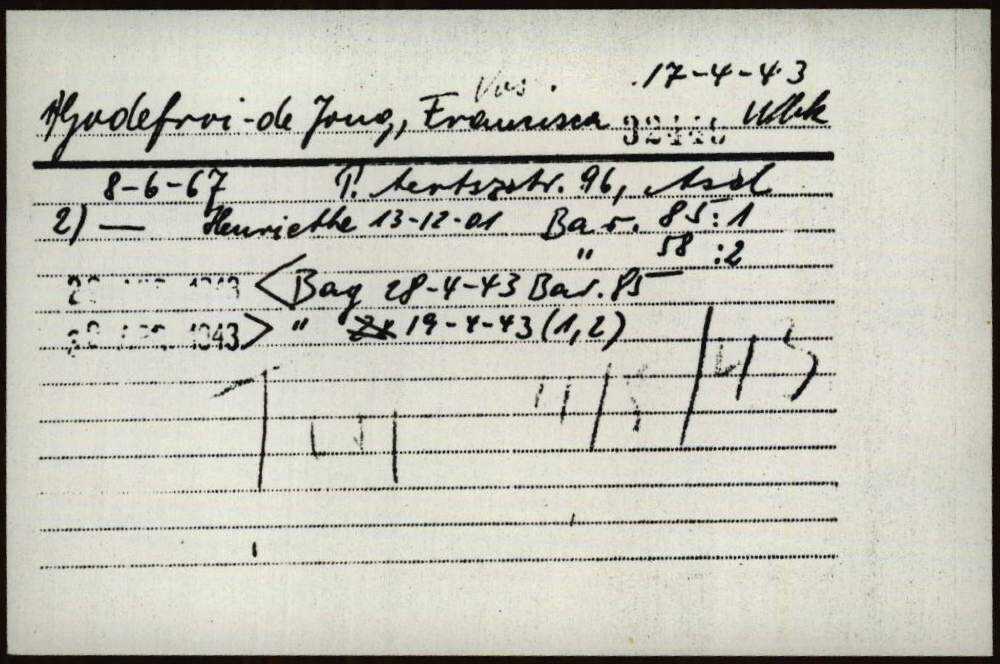 17-4-43
1) Godefroi-de Jong, Francisca 32445
8-6-67 P. Aertszstr. 96, Asd
2) — Henriette 13-12-01 Bar. 85:1
" 58:2
1943 < Bag 28-4-43 Bar. 85
1943 > " 19-4-43 (1,2)
T 4/5 43